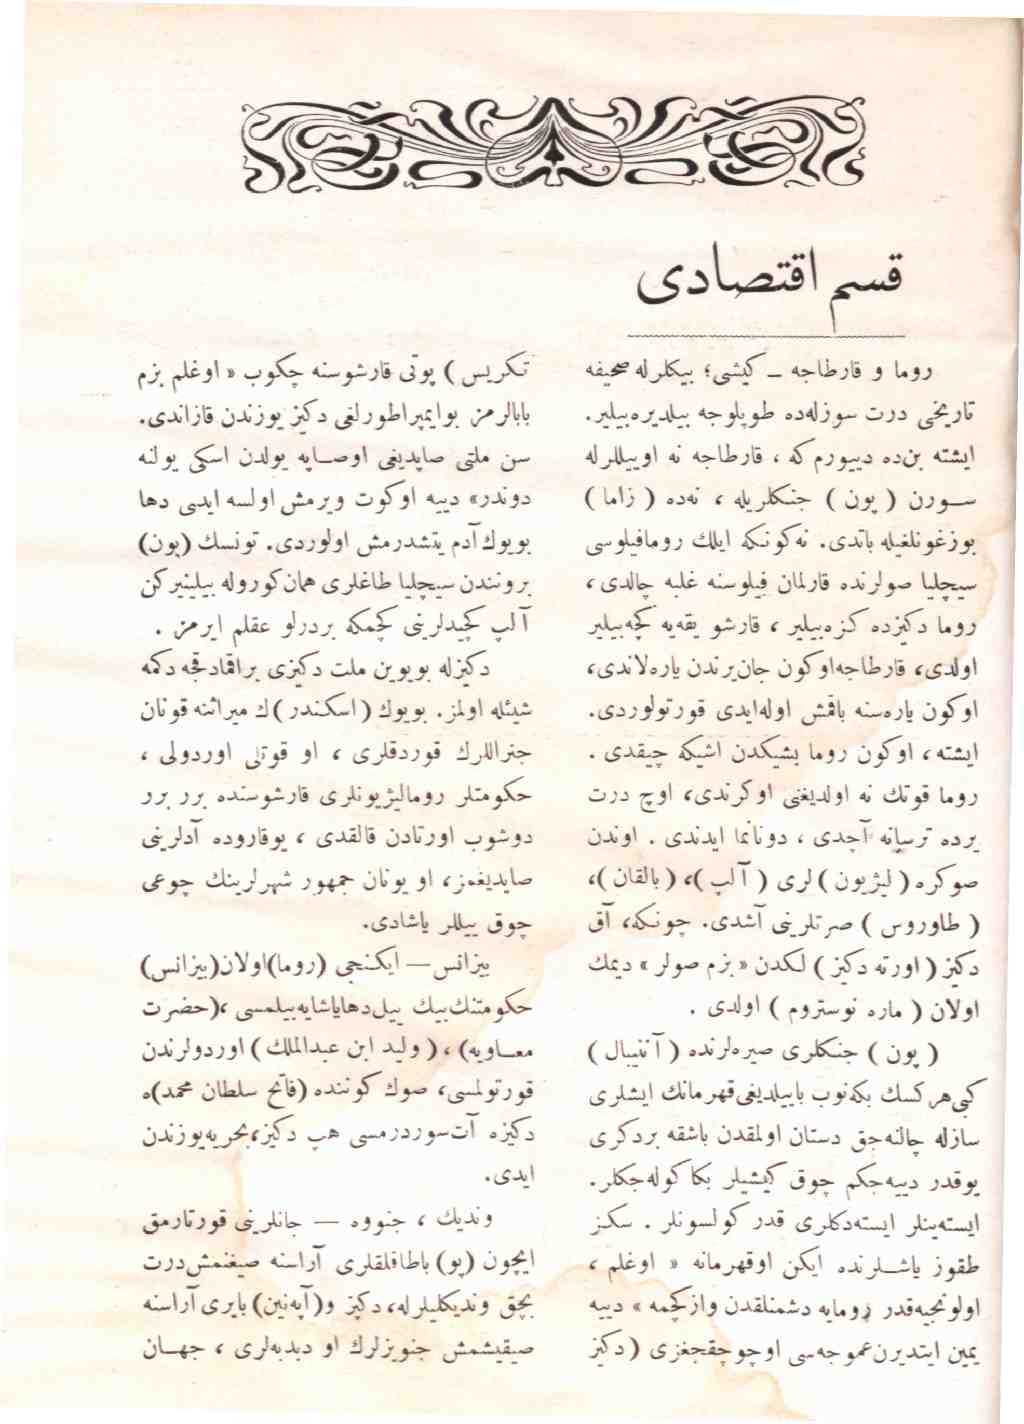 قسم اقتصادی
روما و قارطاجه ـ كیشی؛ بیكلرله صحیفه
تاریخی درت سوزله‌ده طوپلوجه بیلدیره‌بیلیر.
ایشته بن‌ده دییورم كه ، قارطاجه نه اوییللرله
سورن ( پون ) جنكلریله ، نه‌ده ( زاما )
بوزغونلغیله باتدی. نه‌كونكه ایلك رومافیلوسی
سیچلیا صولرنده قارلمان فیلوسنه غلبه چالدی،
روما دكیزده كزه‌بیلیر ، قارشو یقه‌یه كچه‌بیلیر
اولدی، قارطاجه‌اوكون جان‌یرندن یاره‌لاندی،
اوكون یاره‌سنه باقمش اوله‌ایدی قورتولوردی.
ایشته، اوكون روما بشیكدن اشیكه چیقدی .
روما قوتك نه اولدیغنی اوكرندی، اوچ درت
یرده ترسانه آچدی ، دونانما ایدندی . اوندن
صوكره ( لیژیون ) لری ( آلپ )، ( بالقان )،
( طاوروس ) صرتلرینی آشدی. چونكه، آق
دكیز ( اورته دكیز ) لكدن « بزم صولر » دیمك
اولان ( ماره نوستروم ) اولدی .
( پون ) جنكلری صیره‌لرنده ( آننیبال )
كبی‌هركسك بكه‌نوب بایلدیغی‌قهرمانك ایشلری
سازله چالنه‌جق دستان اولمقدن باشقه بردكری
یوقدر دییه‌جكم چوق كیشیلر بكا كوله‌جكلر.
ایسته‌ینلر ایسته‌دكلری قدر كولسونلر . سكز
طقوز یاشلرنده ایكن اوقهرمانه « اوغلم ،
اولونجیه‌قدر رومایه دشمنلقدن وازكچمه » دییه
یمین ایتدیرن‌عموجه‌سی اوچوجقجغزی ( دكیز
تكریس ) پوتی قارشوسنه چكوب « اوغلم بزم
بابالرمز بوایمپراطورلغی دكیز یوزندن قازاندی.
سن ملتی صاپدیغی اوصاپه یولدن اسكی یولنه
دوندر» دییه اوكوت ویرمش اولسه ایدی دها
بویوك‌آدم یتشدرمش اولوردی. تونسك (پون)
برونندن سیچلیا طاغلری همان‌كوروله بیلینیركن
آلپ كچیدلرینی كچمكه بردرلو عقلم ایرمز .
دكیزله بویوین ملت دكیزی براقمادقجه دكمه
شیئله اولمز. بویوك ( اسكندر )ك میراثنه قونان
جنراللرك قوردقلری ، او قوتلی اوردولی ،
حكومتلر رومالیژیونلری قارشوسنده برر برر
دوشوب اورتادن قالقدی ، یوقاروده آدلرینی
صایدیغمز، او یونان جمهور شهرلرینك چوغی
چوق ییللر یاشادی.
بیزانس— ایكنجی (روما)اولان(بیزانس)
حكومتنك‌بیك ییل‌دهایاشایه‌بیلمسی ،(حضرت
معاویه) ، ( ولید ابن عبدالملك ) اوردولرندن
قورتولمسی، صوك كوننده (فاتح سلطان محمد)ه
دكیزه آت‌سوردرمسی هپ دكیز،بحریه‌یوزندن
ایدی.
وندیك ، جنووه — جانلرینی قورتارمق
ایچون (پو) باطاقلقلری آراسنه صیغنمش‌درت
بچق وندیكلیلرله، دكیز و(آپه‌نین) بایری آراسنه
صیقیشمش جنویزلرك او دبدبه‌لری ، جهان